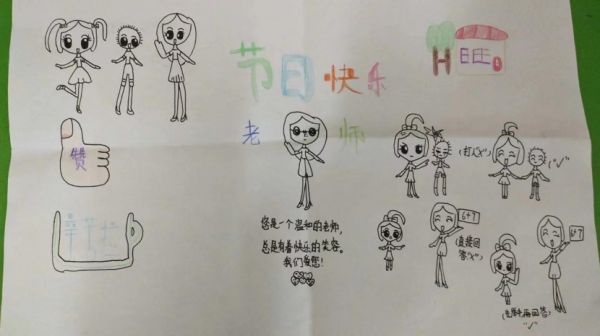 节日快乐
老师
赞
辛苦
您是一个温和的老师,
总是有着快乐的笑容。
我们爱您!
(打人"×")
("√")
6+7
(直接回
答"×")
6+7
"√"